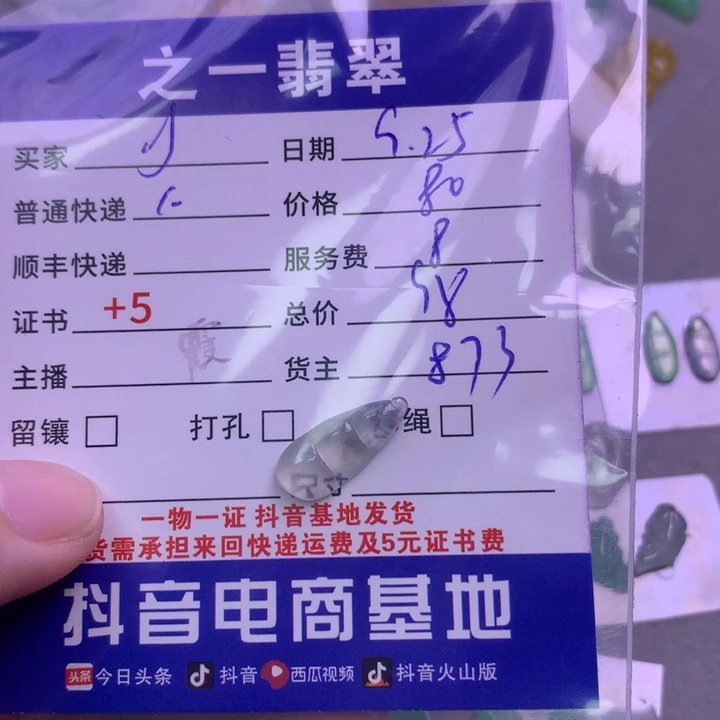 之一翡翠
买家 日期 5.25
普通快递 价格 80
顺丰快递 服务费 8
证书 +5 总价
主播 霞 货主 873
留镶 打孔 绳
尺寸
一物一证 抖音基地发货
货需承担来回快递运费及5元证书费
抖音电商基地
头条 今日头条 抖音 西瓜视频 抖音火山版